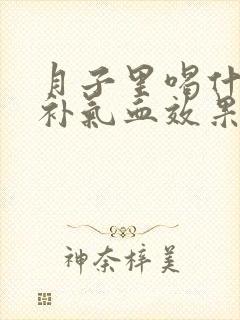 月子里喝什
补氣血效果
神奈梓美